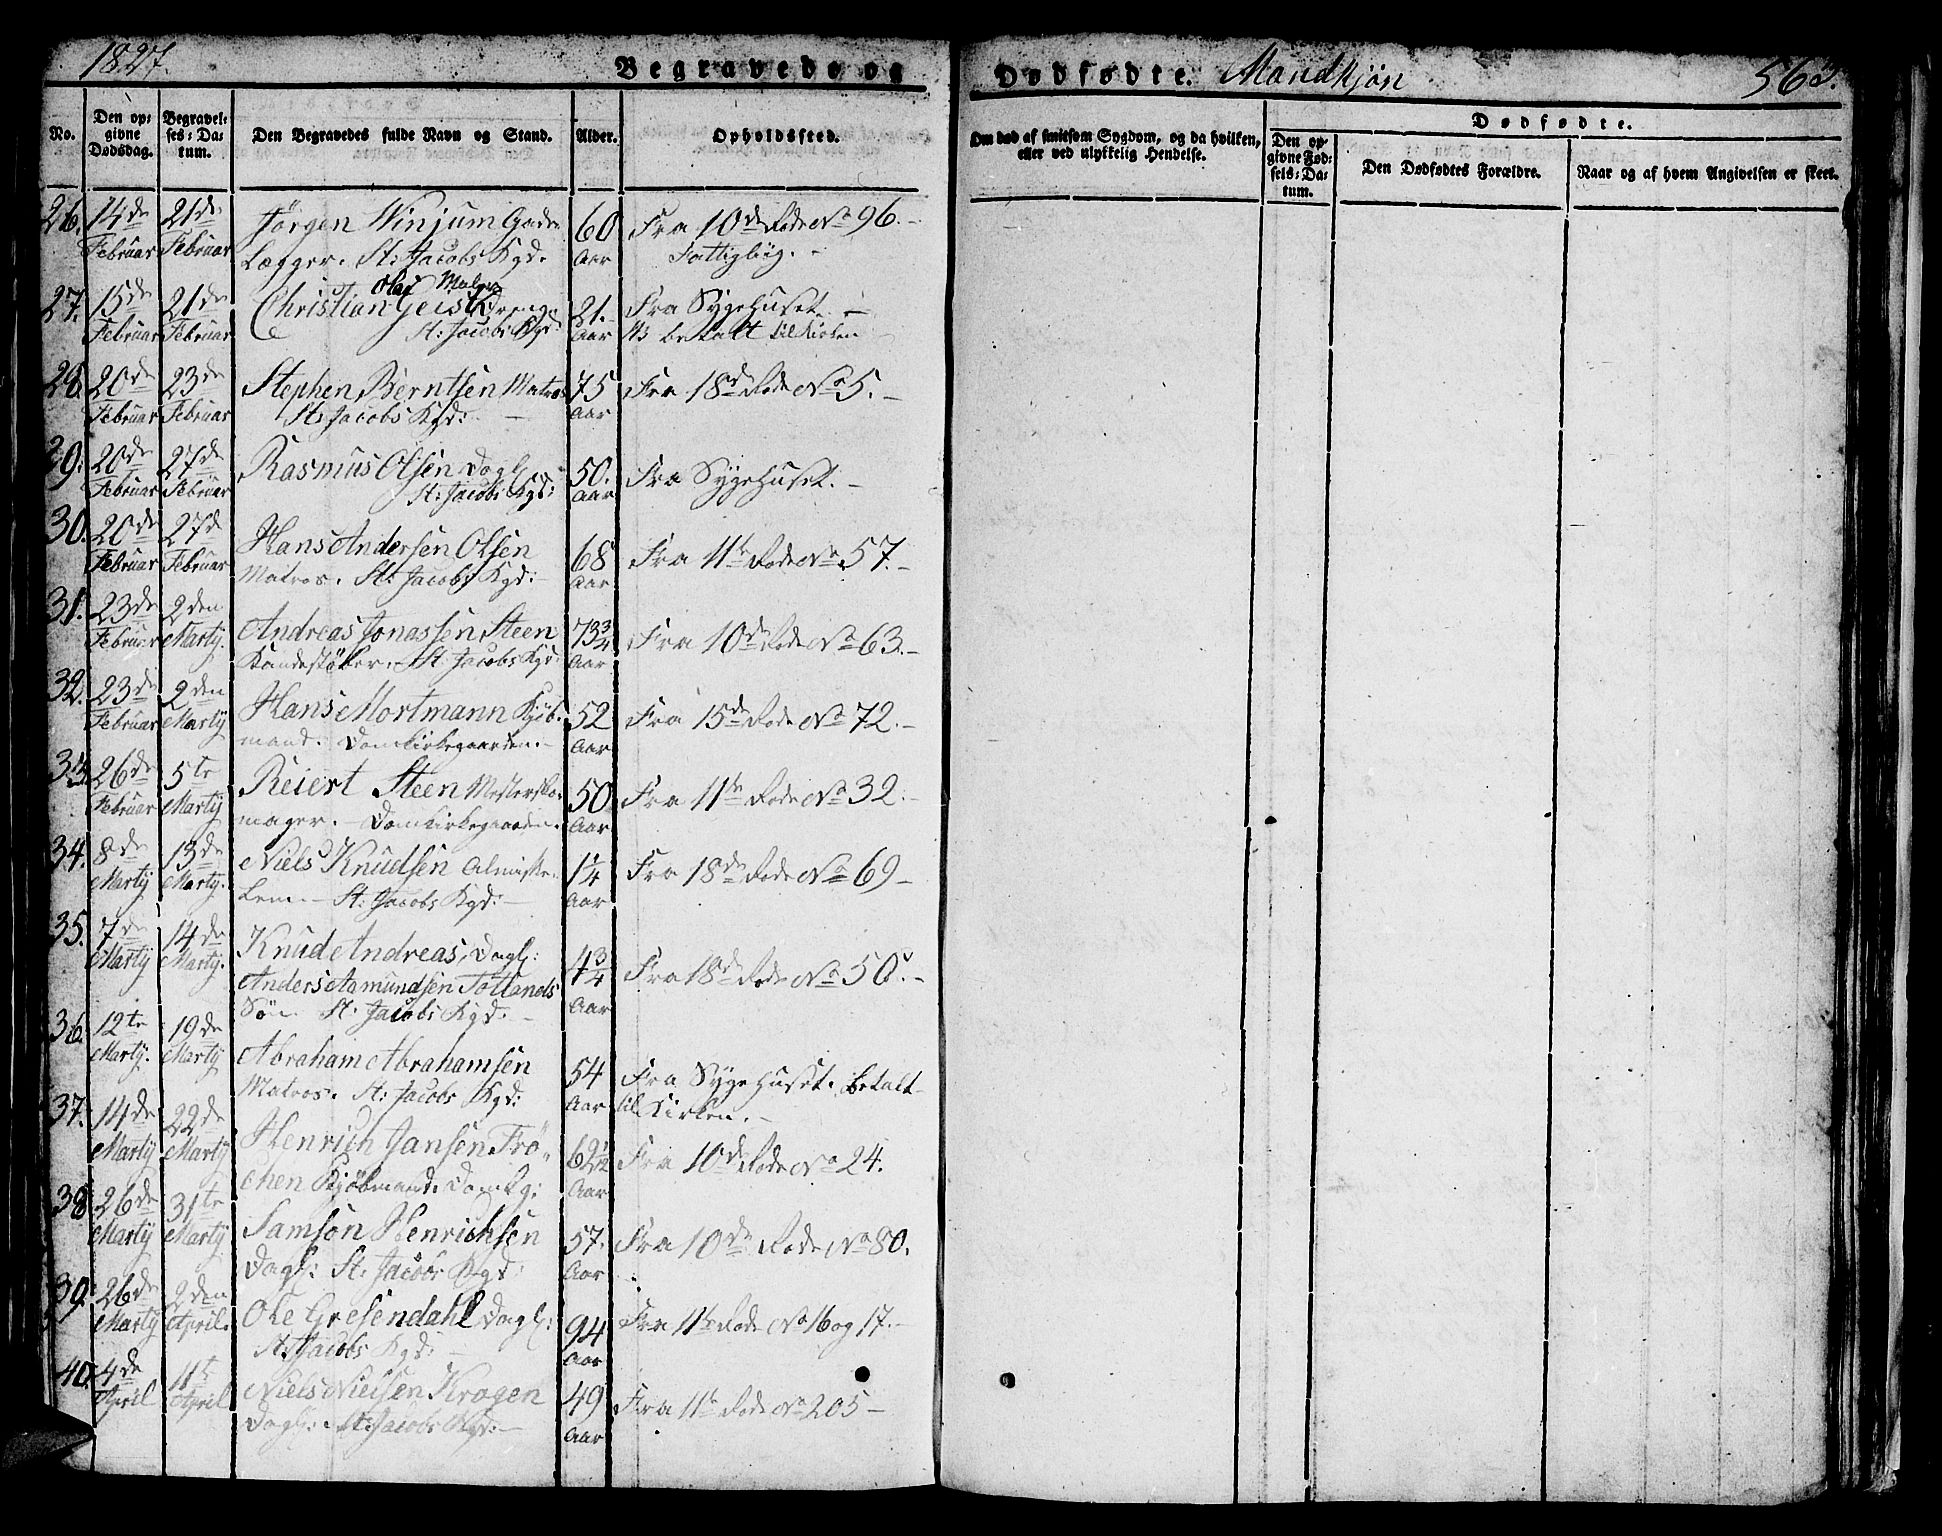 1827.
Begravede og
Dødfødte. Mandkjøn
565.
No.
Den opgivne Dødsdag.
Begravelses-Datum.
Den Begravedes fulde Navn og Stand.
Alder.
Opholdssted.
Om død af smitsom Sygdom, og da hvilken, eller ved ulykkelig Hendelse.
Dødfødte.
Den opgivne Fødsels-Datum.
Den Dødfødtes Forældre.
Naar og af hvem Angivelsen er skeet.
26. 14de Februar 21de Februar Jörgen Winjum Gade- 60 Aar Fra 10de Rode No 96.-
Lægger. St: Jacobs Kgd. Fattigliig.-
27. 15de Februar 21de Februar Christian Olai Geist Maler Dreng. 21. Aar Fra Sygehuset.-
St: Jacobs Kgd: betalt til Kirken
28. 20de Februar 23de Februar Stephen Berntsen Matros 75 Aar Fra 18de Rode No 5.-
St: Jacobs Kgd:-
29. 20de Februar 27de Februar Rasmus Olsen Dagl: 50. Aar Fra Sygehuset.-
St: Jacobs Kgd:
30. 20de Februar 27d Februar Hans Andersen Olsen 68 Aar Fra 11te Rode No 57.-
Matros. St: Jacobs Kgd:-
31. 23de Februar 2den Martij. Andreas Jonassen Steen 73 3/4 Aar Fra 10de Rode No 63.-
Kandestöber. St: Jacobs Kgd:
32. 23de Februar 2den Martij Hans Mortmann Kjöb- 52 Aar Fra 15de Rode No 72.-
mand. Domkirkegaarden.-
33. 26de Februar 5te Martij Reiert Steen Mestersko- 50 Aar Fra 11te Rode No 32.-
mager.- Domkirkegaarden.
34. 8de Martij 13de Martij. Niels Knudsen Almisse- 1 1/4 Aar Fra 18de Rode No 69-
Lem.- St: Jacobs Kgd:-
35. 7de Martij 14de Martij. Knud Andreas, Dagl: 4 3/4 Aar Fra 18de Rode No 50.-
Anders Aamundsen Tötlands
Sön. St: Jacobs Kgd.-
36. 12te Martij. 19de Martij Abraham Abrahamsen 54 Aar Fra Sygehuset. betalt
Matros. St: Jacobs Kgd: til Kirken.-
37. 14de Martij 22de Martij Henrich Jansen Frö- 62 1/2 Aar Fra 10de Rode No 24.
chen Kjöbmand. Domkg:
38. 26de Martij 31te Martij Samson Henrichsen 57. Aar Fra 10de Rode No 80.
Dagl: St: Jacobs Kgd:
39. 26de Martij 2den April. Ole Gresendahl Dagl: 94 Aar Fra 11te Rode No 16 og 17.-
St: Jacobs Kgd:-
40. 4de April 11te April Niels Nielsen Krogen 49 Aar Fra 11te Rode No 205-
Dagl: St: Jacobs Kgd:-